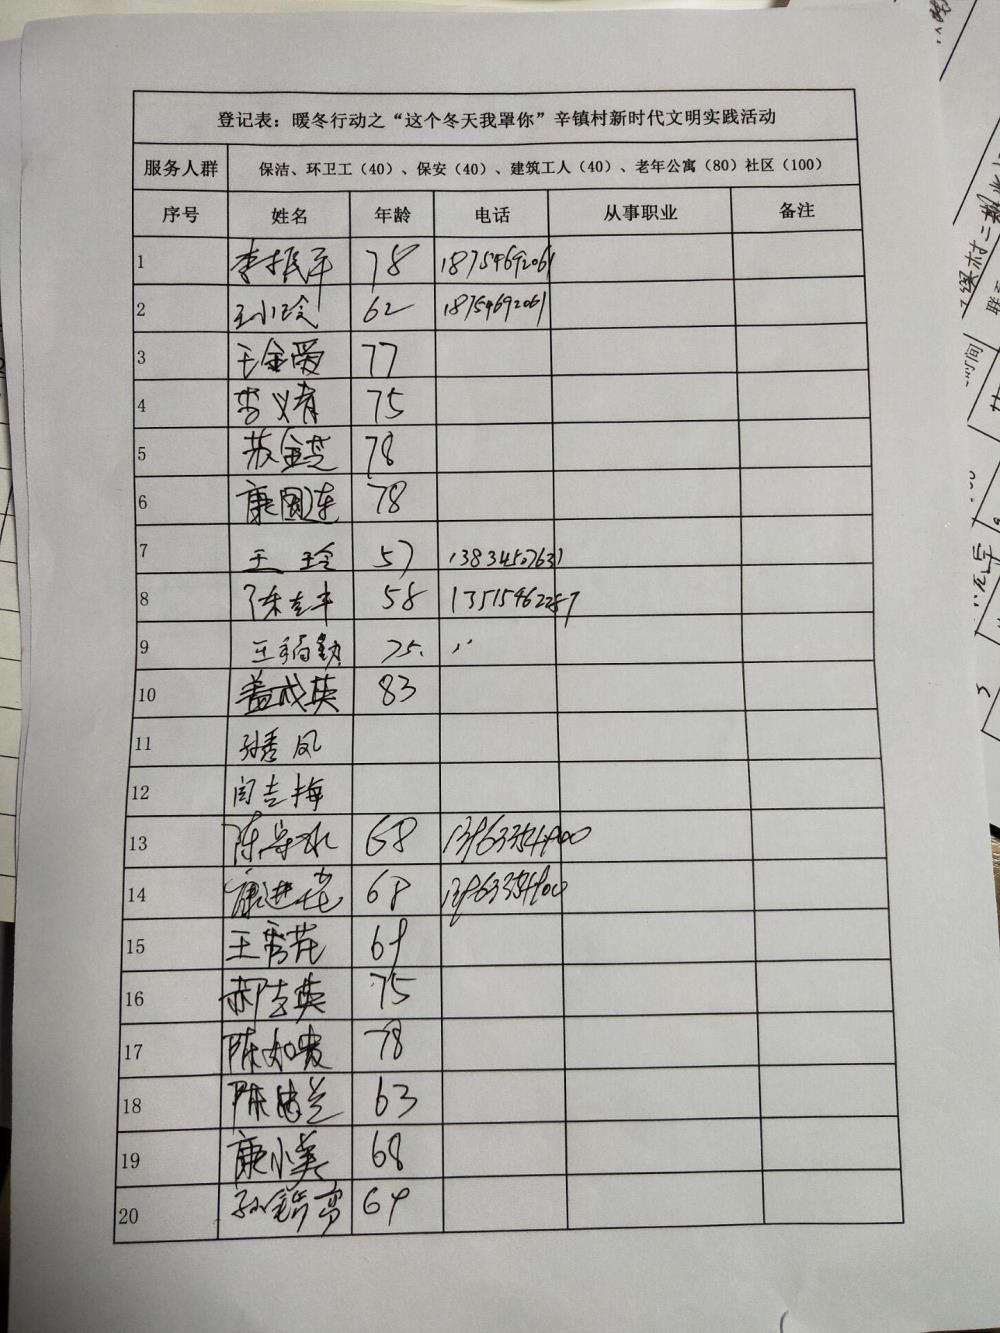 登记表：暖冬行动之“这个冬天我罩你”辛镇村新时代文明实践活动
服务人群 保洁、环卫工（40）、保安（40）、建筑工人（40）、老年公寓（80）社区（100）
序号 姓名 年龄 电话 从事职业 备注
1 李振平 78 18754692061
2 王小玲 62 18754692061
3 王金爱 77
4 李义有 75
5 苏金芝 78
6 康国连 78
7 王玲 57
8 陈吉丰 58
9 75.
10 盖成英 83
11 孙秀凤
12 闫吉梅
13 68
14 康进花 68
15 王秀花
16 郝吉英 75
17 陈加贵 78
18 63
19 康小美 68
20